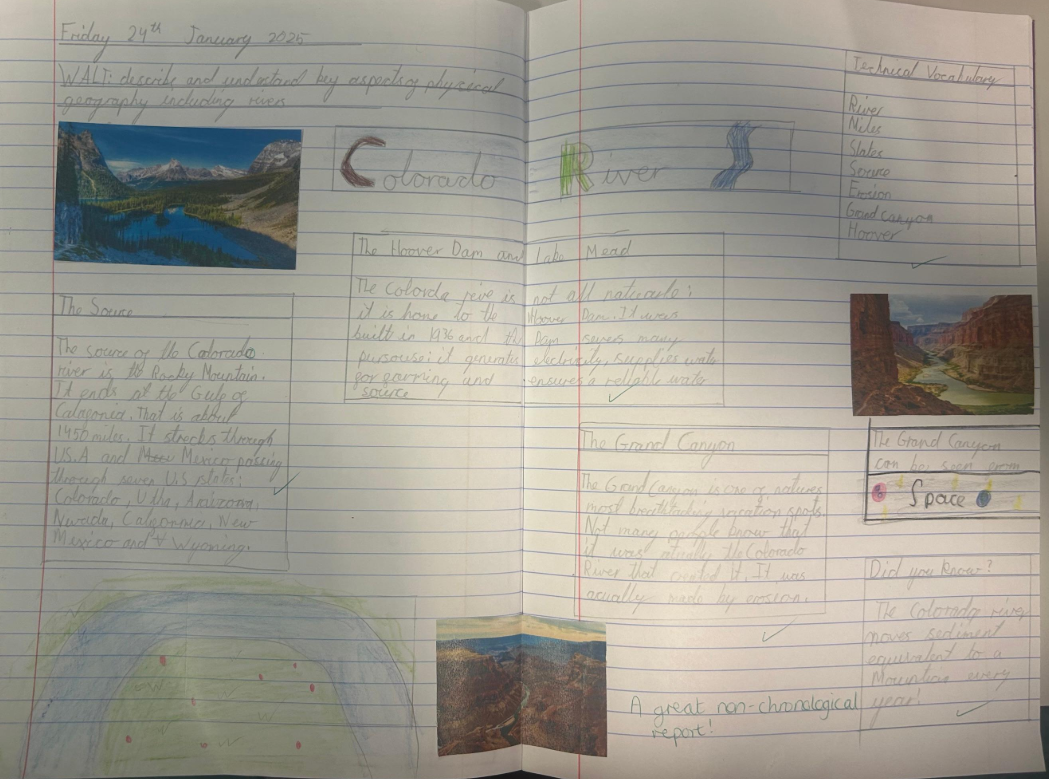 Friday 24th January 2025
WALT: describe and understand key aspects of physical
geography including rivers
Colorado River
Technical Vocabulary
River
Miles
States
Source
Erosion
Grand canyon
Hoover
The Hoover Dam and Lake Mead
The Colorda rive is not all naturale;
it is home to the Hoover Dam. It was
built in 1936 and the Dam servs many
pursouse: it generates electricity, supplies water
for farming and ensures a reliable water
source
The Source
The source of the Colorado
river is the Rocky Mountain.
It ends at the Gulf of
Califonia. That is about
1450 miles. It strecks through
U.S.A and Mexico passing
through seven U.S states:
Colorado, Utha, Arizona,
Nevada, Califonia, New
Mexico and Wyoming.
The Grand Canyon
The Grand Canyon is one of natures
most breathtaking vacation spots.
Not many people know that
it was actually the Colorado
River that created it. It was
acually made by erosion.
The Grand Canyon
can be seen from
Space
Did you know?
The Colorado river
moves sediment
equivalent to a
Mountain every
year!
A great non-chronological
report!